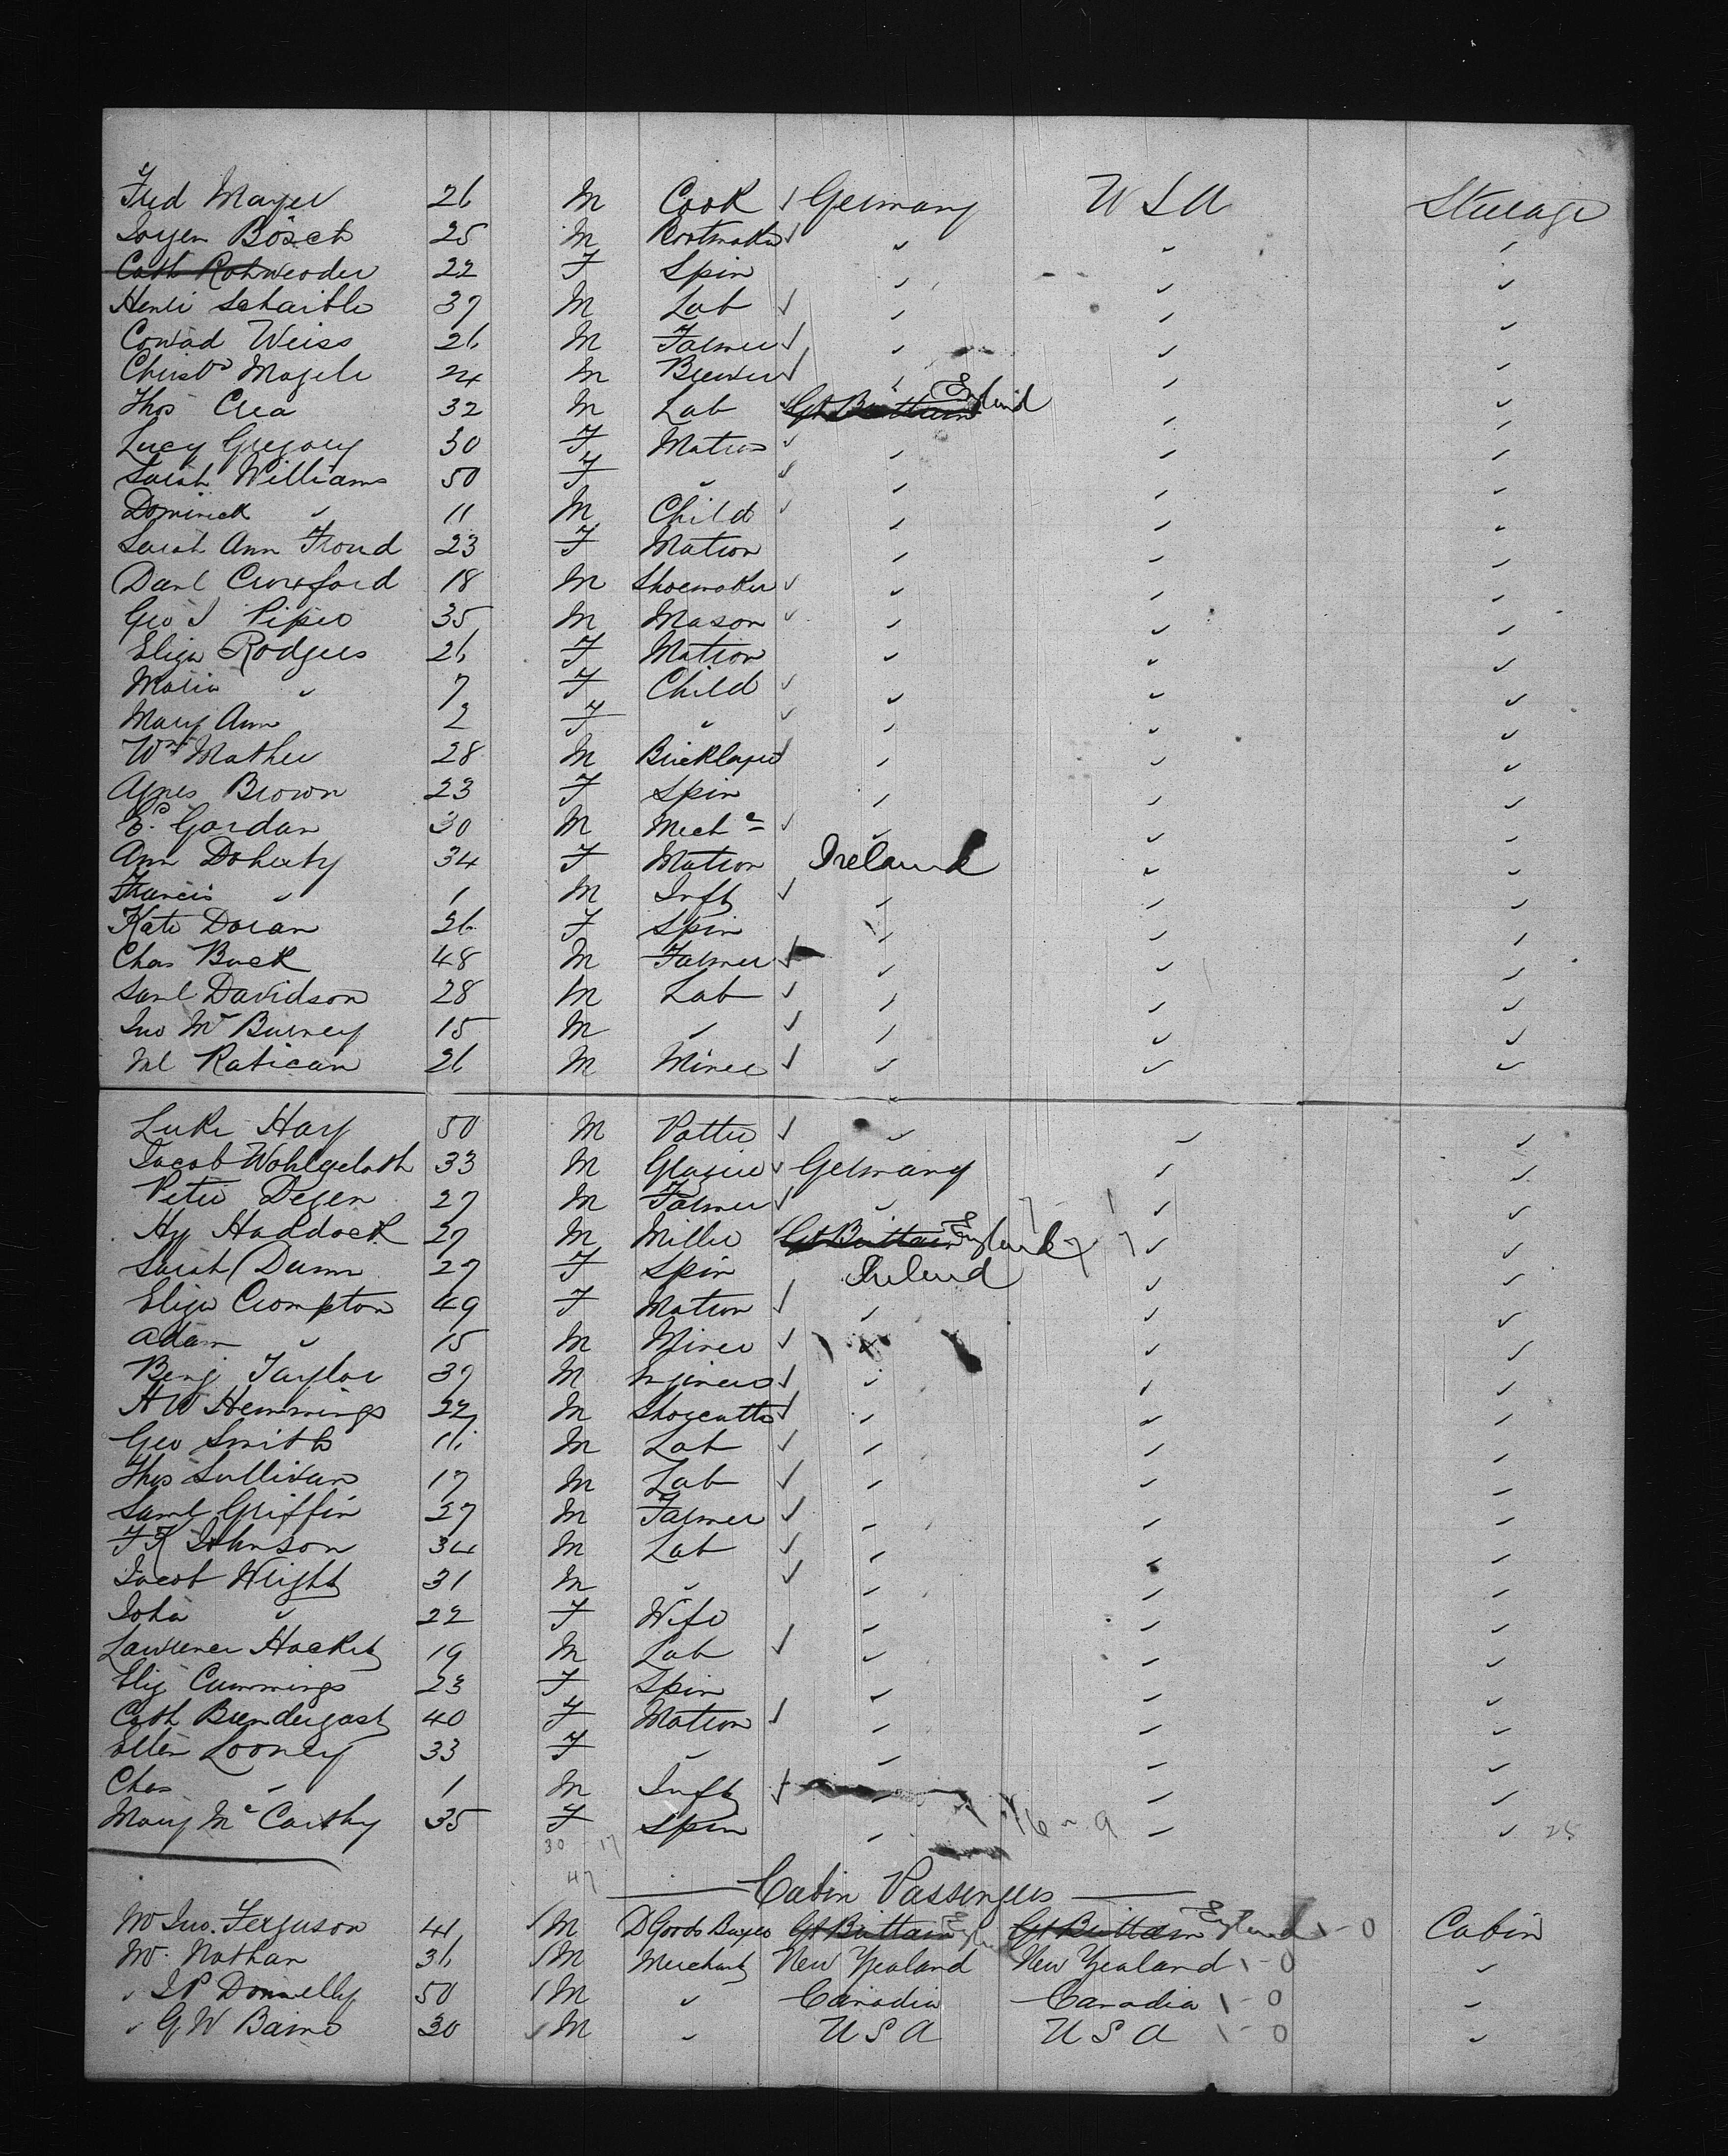 Fred Mayer 26 M Cook Germany USA Steerage
Joyen Bosch 25 M Bootmaker " " "
Cath Rohweoder 22 F Spin " " "
Henri Schaible 37 M Lab " " "
Conrad Weiss 26 M Farmer " " "
Christn Magele 24 M Brewer " " "
Thos Crea 32 M Lab Gt Brittain England " "
Lucy Gregory 30 F Matron " " "
Sarah Williams 50 F " " " "
Dominick " 11 M Child " " "
Sarah Ann Froud 23 F Matron " " "
Danl Croxford 18 M Shoemaker " " "
Geo J Piper 35 M Mason " " "
Eliza Rodgers 26 F Matron " " "
Maria " 7 F Child " " "
Mary Ann 2 F " " " "
Wm Mather 28 M Bricklayer " " "
Agnes Brown 23 F Spin " " "
Gordan 30 M Mechc " " "
Ann Doherty 34 F Matron Ireland " "
Francis " 1 M Inft " " "
Kate Doran 26 F Spin " " "
Chas Buck 48 M Farmer " " "
Saml Davidson 28 M Lab " " "
Jno Mc Burney 15 M " " " "
Ml Ratican 26 M Miner " " "
Luke Hay 50 M Potter " " "
Jacob Wohlgeloth 33 M Glazier Germany " "
Peter Degen 27 M Farmer " " "
Hy Haddock 27 M Miller Gt Brittain England " "
Sarah Dunn 27 F Spin Ireland " "
Eliza Crompton 49 F Matron " " "
Adam " 15 M Miner " " "
Benj Taylor 37 M Engineer " " "
H W Hemmings 22 M Shoecutter " " "
Geo Smith 16 M Lab " " "
Thos Sullivan 17 M Lab " " "
Saml Griffin 27 M Farmer " " "
F K Johnson 34 M Lab " " "
Jacob Wright 31 M " " " "
Joha " 22 F Wife " " "
Lawrence Hacket 19 M Lab " " "
Eliz Cummings 23 F Spin " " "
Cath Brendergast 40 F Matron " " "
Ellen Looney 33 F " " " "
Chas " 1 M Inft " " "
Mary Mc Carthy 35 F Spin " 16 - 9 " " 25
30 - 17
47
Cabin Passengers
Mr Jno. Ferguson 41 M D Goods Buyer Gt Brittain England Gt Brittain England 1-0 Cabin
Mr. Nathan 36 M Merchant New Zealand New Zealand 1-0 "
" J P Donnelly 50 M " Canadia Canadia 1-0 "
" G W Bains 30 M " USA USA 1-0 "